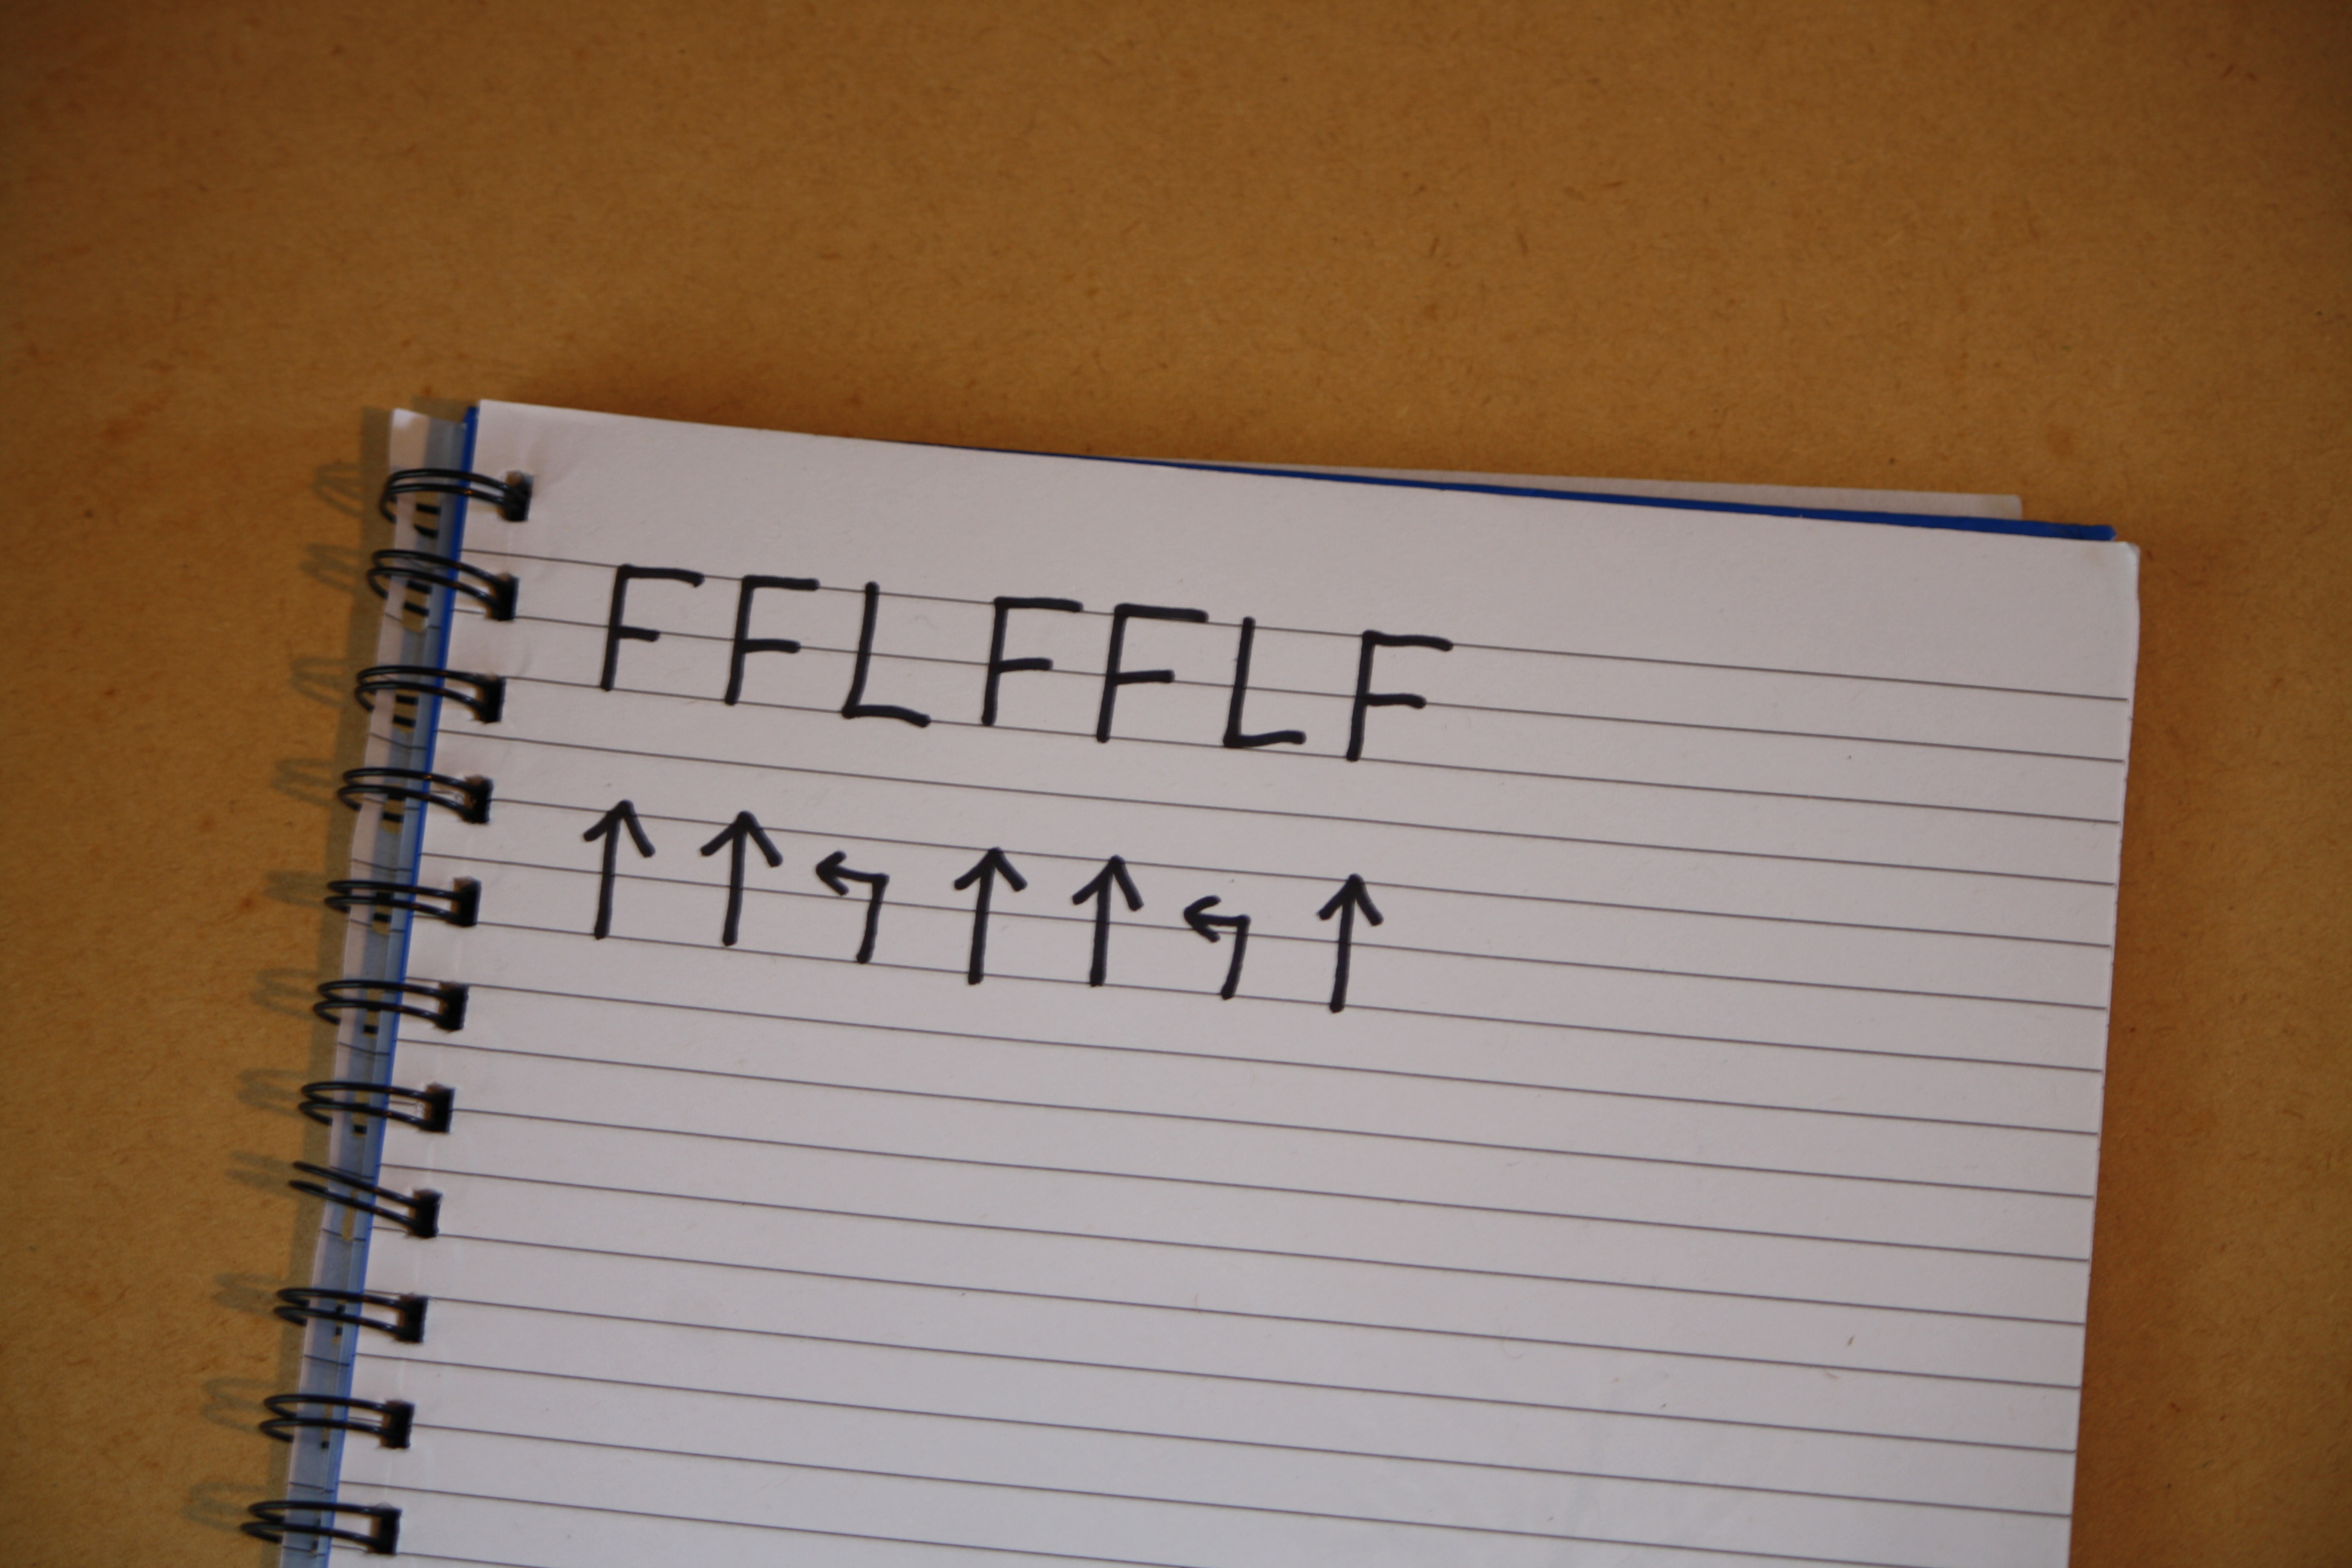 FFLFFLF
↑↑↰↑↑↰↑